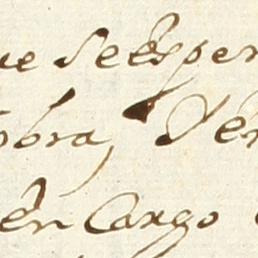 ue se esper
obra, Ver
en Cargo